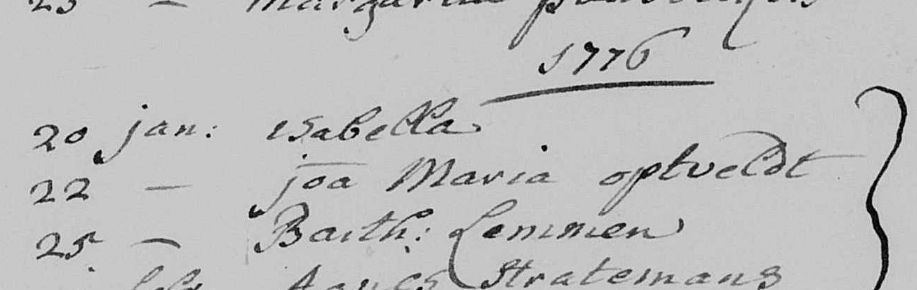 25 — Margaretha
1776
20 jan: isabella
22 — joa Maria optveldt
25 — Barth: Lemmen
Agnes Stratemans